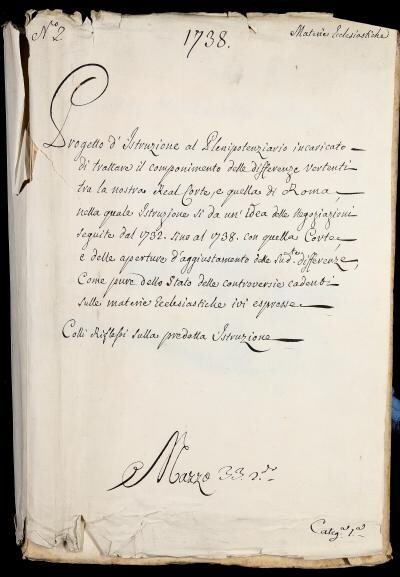 N.ro 2.
1738.
Materie Ecclesiastiche
Progetto d'Istruzione al Plenipotenziario incaricato
di trattare il componimento delle differenze vertenti
tra la nostra Real Corte, e quella di Roma,
nella quale Istruzione si dà un'idea delle Negoziazioni
seguite dal 1732. sino al 1738. con quella Corte,
e delle aperture d'aggiustamento delle sud.te differenze,
Come pure dello Stato delle controversie cadenti
sulle materie Ecclesiastiche ivi espresse
Colli Riflessi sulla predotta Istruzione
Mazzo 33. 2.do
Categ.a 1.a